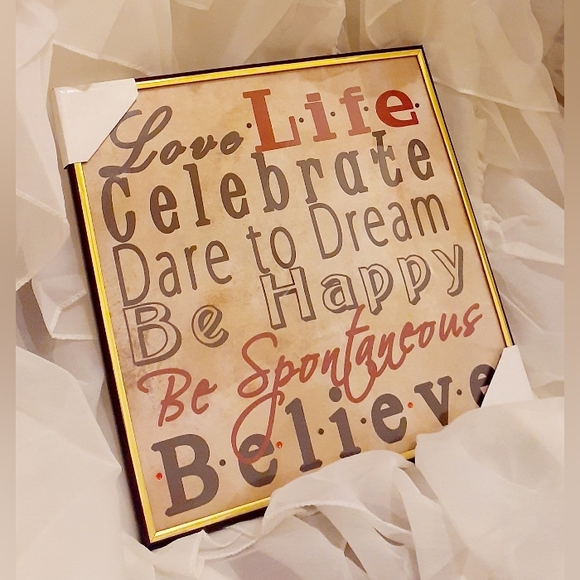 Love·L·i·f·e·
Celebrate
Dare to Dream
Be Happy
Be Spontaneous
B·e·l·i·e·v·e